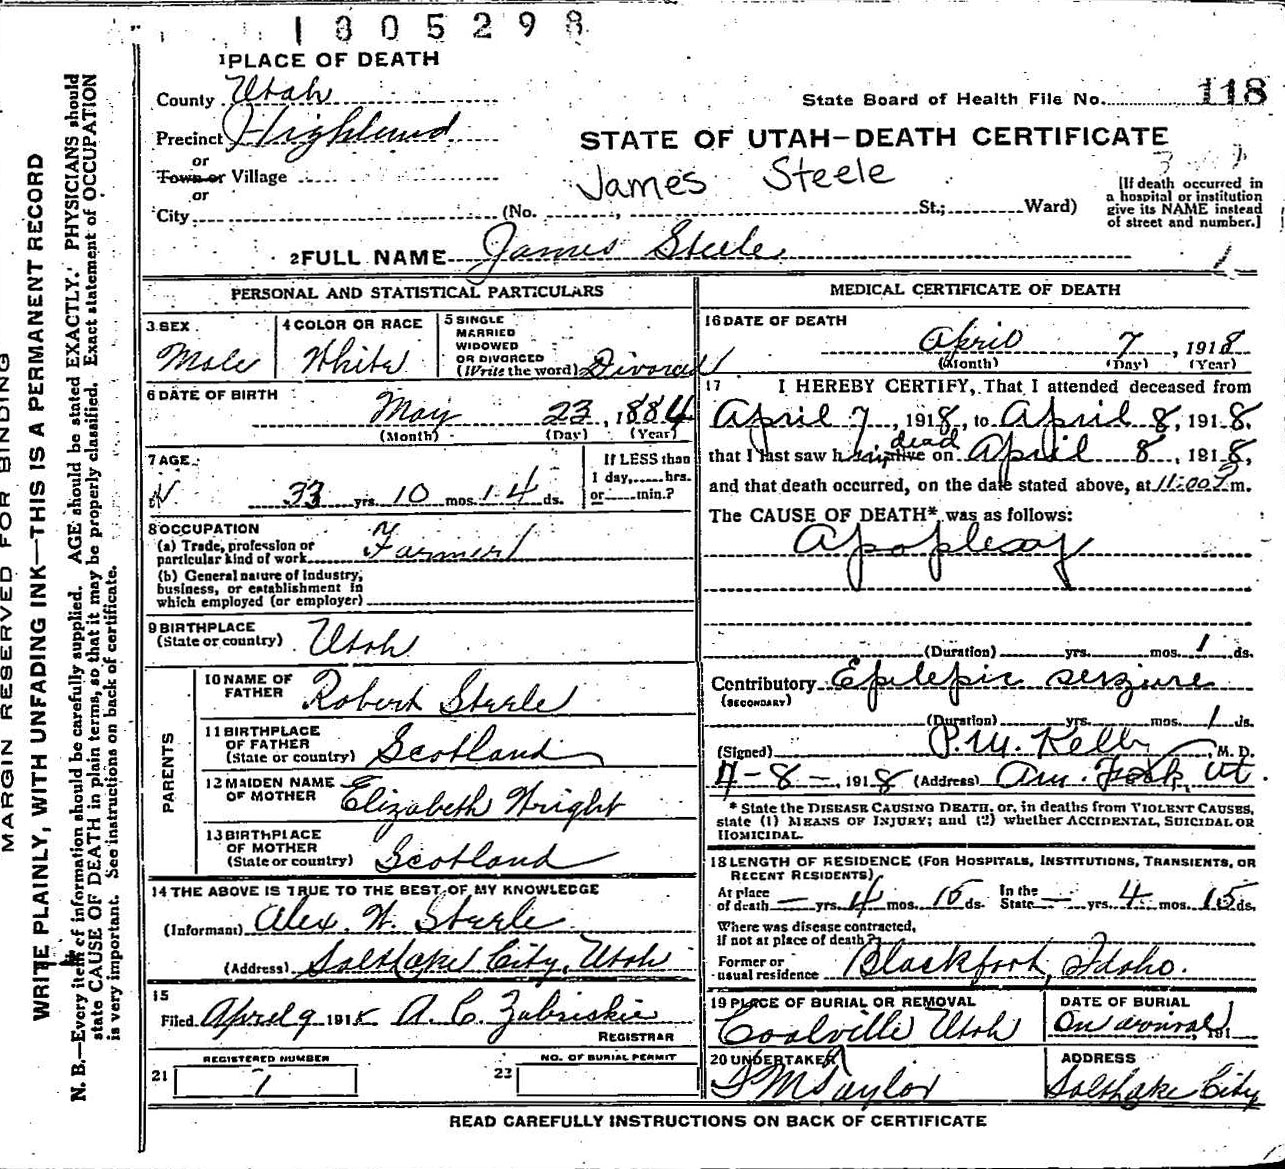 1805298
1 PLACE OF DEATH
County Utah
State Board of Health File No. 118
Precinct Highland
STATE OF UTAH—DEATH CERTIFICATE
or
Town or Village
James Steele
or
City (No. , St.; Ward)
[If death occurred in
a hospital or institution
give its NAME instead
of street and number.]
2 FULL NAME James Steele
PERSONAL AND STATISTICAL PARTICULARS
3 SEX
Male
4 COLOR OR RACE
White
5 SINGLE
MARRIED
WIDOWED
OR DIVORCED
(Write the word) Divorced
6 DATE OF BIRTH
May 23, 1884
(Month) (Day) (Year)
7 AGE
33 yrs. 10 mos. 14 ds.
If LESS than
1 day, hrs.
or min.?
8 OCCUPATION
(a) Trade, profession or
particular kind of work Farmer
(b) General nature of Industry,
business, or establishment in
which employed (or employer)
9 BIRTHPLACE
(State or country) Utah
PARENTS
10 NAME OF
FATHER Robert Steele
11 BIRTHPLACE
OF FATHER
(State or country) Scotland
12 MAIDEN NAME
OF MOTHER Elizabeth Wright
13 BIRTHPLACE
OF MOTHER
(State or country) Scotland
14 THE ABOVE IS TRUE TO THE BEST OF MY KNOWLEDGE
(Informant) Alex. W. Steele
(Address) Salt Lake City, Utah
15
Filed April 9 1918 A. C. Zabriskie
REGISTRAR
REGISTERED NUMBER
21 1
NO. OF BURIAL PERMIT
23
MEDICAL CERTIFICATE OF DEATH
16 DATE OF DEATH
April 7, 1918
(Month) (Day) (Year)
17 I HEREBY CERTIFY, That I attended deceased from
April 7, 1918, to April 8, 1918,
dead
that I last saw him alive on April 8, 1918,
and that death occurred, on the date stated above, at 11:00 P m.
The CAUSE OF DEATH* was as follows:
Apoplexy
(Duration) yrs. mos. 1 ds.
Contributory Epilepic seizure
(SECONDARY)
(Duration) yrs. mos. 1 ds.
(Signed) P. M. Kelly M. D.
4-8-, 1918 (Address) Am. Fork, Ut.
* State the DISEASE CAUSING DEATH, or, in deaths from VIOLENT CAUSES,
state (1) MEANS OF INJURY; and (2) whether ACCIDENTAL, SUICIDAL OR
HOMICIDAL.
18 LENGTH OF RESIDENCE (FOR HOSPITALS, INSTITUTIONS, TRANSIENTS, OR
RECENT RESIDENTS)
At place
of death — yrs. 4 mos. 15 ds. In the
State — yrs. 4 mos. 15 ds.
Where was disease contracted,
if not at place of death?
Former or
usual residence Blackfoot, Idaho.
19 PLACE OF BURIAL OR REMOVAL
Coalville Utah
DATE OF BURIAL
On arrival, 191
20 UNDERTAKER
S M Taylor
ADDRESS
Salt Lake City
READ CAREFULLY INSTRUCTIONS ON BACK OF CERTIFICATE
MARGIN RESERVED FOR BINDING
WRITE PLAINLY, WITH UNFADING INK—THIS IS A PERMANENT RECORD
N. B.—Every item of information should be carefully supplied. AGE should be stated EXACTLY. PHYSICIANS should
state CAUSE OF DEATH in plain terms, so that it may be properly classified. Exact statement of OCCUPATION
is very important. See instructions on back of certificate.